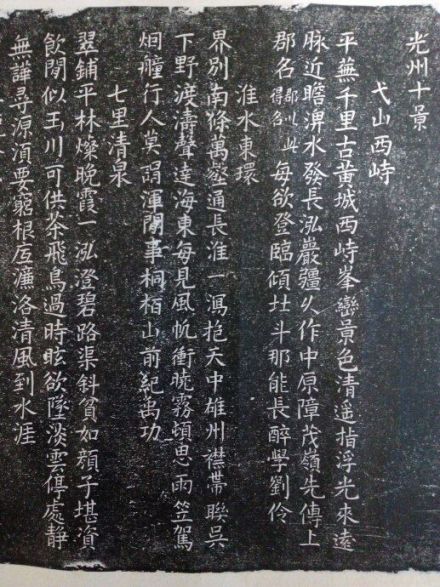 光州十景
弋山西峙
平蕪千里古黃城西峙峯巒景色清遥指浮光來遠
脉近瞻淠水發長泓巖疆久作中原障茂嶺先傳上
郡名郡以此得名每欲登臨傾北斗那能長醉學劉伶
淮水東環
界別南條萬壑通長淮一瀉抱天中雄州襟帶聯吳
下野渡濤聲達海東每見風帆衝曉霧頓思雨笠駕
烟艟行人莫謂渾閒事桐栢山前紀禹功
七里清泉
翠鋪平林燦晚霞一泓澄碧路渠斜貧如顏子堪資
飲閒似玉川可供茶飛鳥過時眩欲墜淡雲停處靜
無譁尋源須要窮根底濂洛清風到水涯